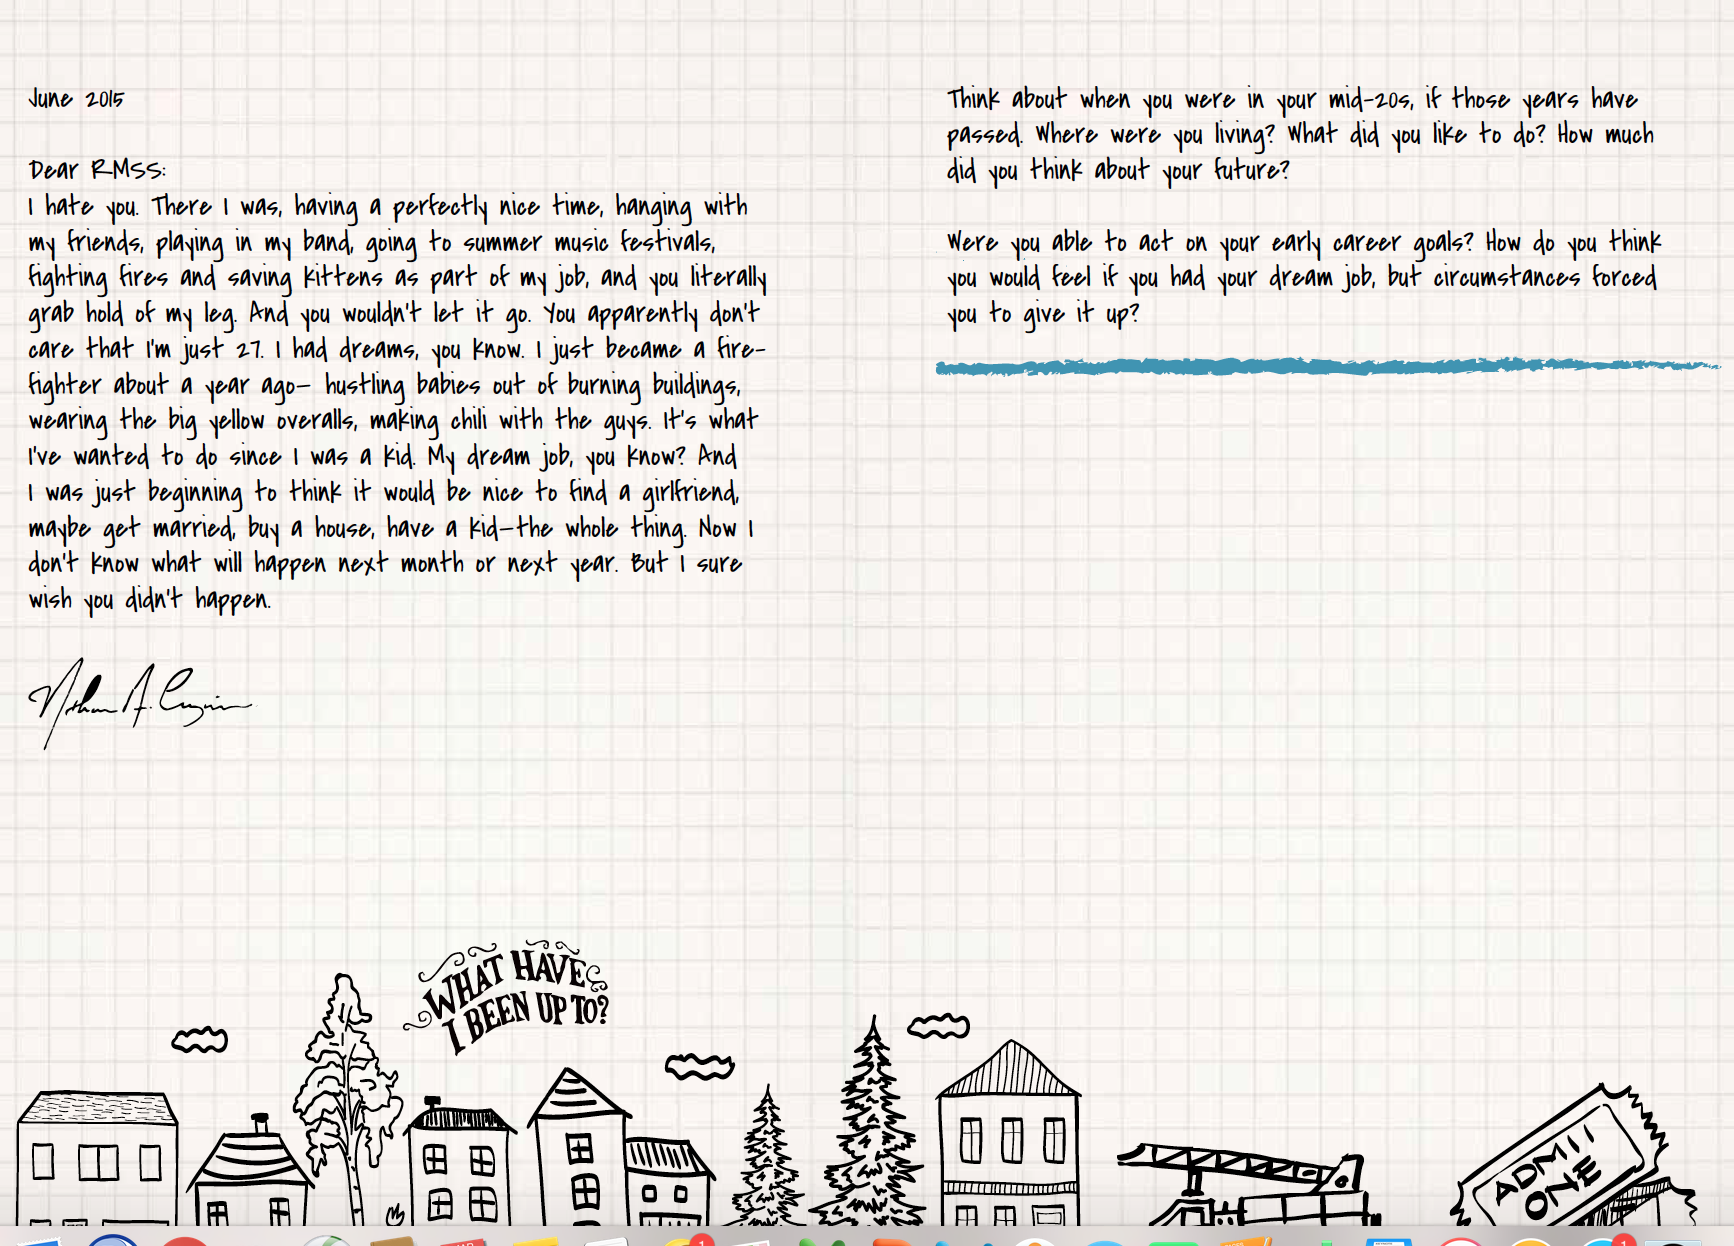 June 2015
Dear RMSS:
I hate you. There I was, having a perfectly nice time, hanging with
my friends, playing in my band, going to summer music festivals,
fighting fires and saving kittens as part of my job, and you literally
grab hold of my leg. And you wouldn't let it go. You apparently don't
care that I'm just 27. I had dreams, you know. I just became a fire-
fighter about a year ago— hustling babies out of burning buildings,
wearing the big yellow overalls, making chili with the guys. It's what
I've wanted to do since I was a kid. My dream job, you know? And
I was just beginning to think it would be nice to find a girlfriend,
maybe get married, buy a house, have a kid—the whole thing. Now I
don't know what will happen next month or next year. But I sure
wish you didn't happen.
WHAT HAVE
I BEEN UP TO?
Think about when you were in your mid-20s, if those years have
passed. Where were you living? What did you like to do? How much
did you think about your future?
Were you able to act on your early career goals? How do you think
you would feel if you had your dream job, but circumstances forced
you to give it up?
ADMIT
ONE